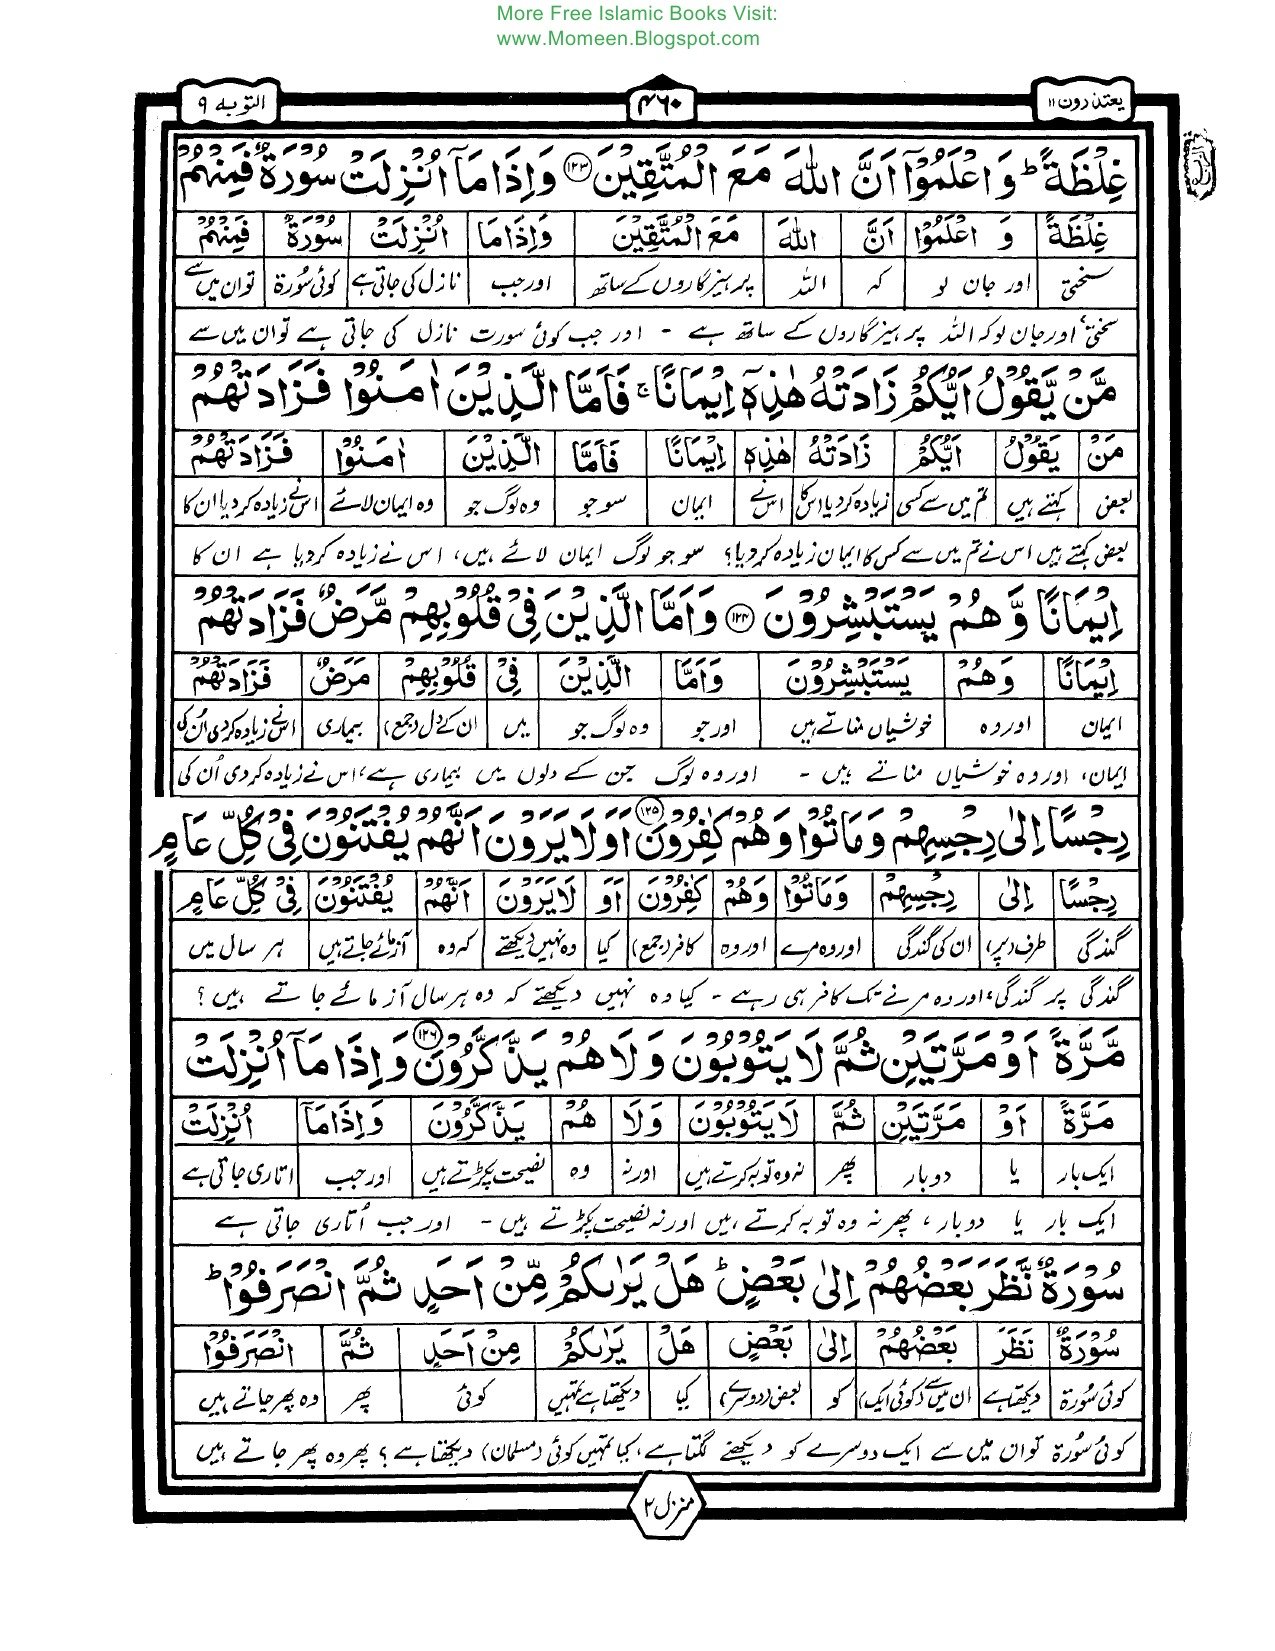 More Free Islamic Books Visit:
www.Momeen.Blogspot.com
یعتذرون ۱۱
۴۶۰
التوبہ ۹
غِلْظَةً ؕ وَاعْلَمُوْۤا اَنَّ اللّٰهَ مَعَ الْمُتَّقِیْنَ ۝۱۲۳ وَاِذَا مَاۤ اُنْزِلَتْ سُوْرَةٌ فَمِنْهُمْ
غِلْظَةً وَ اعْلَمُوْۤا اَنَّ اللّٰهَ مَعَ الْمُتَّقِیْنَ وَاِذَا مَا اُنْزِلَتْ سُوْرَةٌ فَمِنْهُمْ
سختی اور جان لو کہ اللہ پرہیزگاروں کے ساتھ اور جب نازل کی جاتی ہے کوئی سُورۃ تو ان میں سے
سختی، اور جان لو کہ اللہ پرہیزگاروں کے ساتھ ہے - اور جب کوئی سورت نازل کی جاتی ہے تو ان میں سے
مَّنْ یَّقُوْلُ اَیُّكُمْ زَادَتْهُ هٰذِهٖۤ اِیْمَانًا ۚ فَاَمَّا الَّذِیْنَ اٰمَنُوْا فَزَادَتْهُمْ
مَنْ یَقُوْلُ اَیُّكُمْ زَادَتْهُ هٰذِهٖۤ اِیْمَانًا فَاَمَّا الَّذِیْنَ اٰمَنُوْا فَزَادَتْهُمْ
بعض کہتے ہیں تم میں سے کسی زیادہ کردیا اس کا اس نے ایمان سو جو وہ لوگ جو وہ ایمان لائے اس نے زیادہ کردیا ان کا
بعض کہتے ہیں اس نے تم میں سے کس کا ایمان زیادہ کردیا؟ سو جو لوگ ایمان لائے ہیں، اس نے زیادہ کردیا ہے ان کا
اِیْمَانًا وَّهُمْ یَسْتَبْشِرُوْنَ ۝۱۲۴ وَاَمَّا الَّذِیْنَ فِیْ قُلُوْبِهِمْ مَّرَضٌ فَزَادَتْهُمْ
اِیْمَانًا وَهُمْ یَسْتَبْشِرُوْنَ وَاَمَّا الَّذِیْنَ فِیْ قُلُوْبِهِمْ مَرَضٌ فَزَادَتْهُمْ
ایمان اور وہ خوشیاں مناتے ہیں اور جو وہ لوگ جو میں ان کے دل (جمع) بیماری اس نے زیادہ کردی اُن کی
ایمان، اور وہ خوشیاں مناتے ہیں - اور وہ لوگ جن کے دلوں میں بیماری ہے، اس نے زیادہ کردی اُن کی
رِجْسًا اِلٰی رِجْسِهِمْ وَمَاتُوْا وَهُمْ كٰفِرُوْنَ ۝۱۲۵ اَوَلَا یَرَوْنَ اَنَّهُمْ یُفْتَنُوْنَ فِیْ كُلِّ عَامٍ
رِجْسًا اِلٰی رِجْسِهِمْ وَمَاتُوْا وَهُمْ كٰفِرُوْنَ اَوَ لَا یَرَوْنَ اَنَّهُمْ یُفْتَنُوْنَ فِیْ كُلِّ عَامٍ
گندگی طرف (پر) ان کی گندگی اور وہ مرے اور وہ کافر (جمع) کیا وہ نہیں دیکھتے کہ وہ آزمائے جاتے ہیں ہر سال میں
گندگی پر گندگی، اور وہ مرنے تک کافر ہی رہے - کیا وہ نہیں دیکھتے کہ وہ ہر سال آزمائے جاتے ہیں؟
مَّرَّةً اَوْ مَرَّتَیْنِ ثُمَّ لَا یَتُوْبُوْنَ وَلَا هُمْ یَذَّكَّرُوْنَ ۝۱۲۶ وَاِذَا مَاۤ اُنْزِلَتْ
مَرَّةً اَوْ مَرَّتَیْنِ ثُمَّ لَا یَتُوْبُوْنَ وَلَا هُمْ یَذَّكَّرُوْنَ وَاِذَا مَاۤ اُنْزِلَتْ
ایک بار یا دو بار پھر نہ وہ توبہ کرتے ہیں اور نہ وہ نصیحت پکڑتے ہیں اور جب اتاری جاتی ہے
ایک بار یا دو بار، پھر نہ وہ توبہ کرتے ہیں اور نہ نصیحت پکڑتے ہیں - اور جب اُتاری جاتی ہے
سُوْرَةٌ نَّظَرَ بَعْضُهُمْ اِلٰی بَعْضٍ ؕ هَلْ یَرٰىكُمْ مِّنْ اَحَدٍ ثُمَّ انْصَرَفُوْا ؕ
سُوْرَةٌ نَظَرَ بَعْضُهُمْ اِلٰی بَعْضٍ هَلْ یَرٰىكُمْ مِنْ اَحَدٍ ثُمَّ انْصَرَفُوْا
کوئی سُورۃ دیکھتا ہے ان میں سے (کوئی ایک) کو بعض (دوسرے) کیا دیکھتا ہے تمہیں کوئی پھر وہ پھر جاتے ہیں
کوئی سُورۃ تو ان میں سے ایک دوسرے کو دیکھنے لگتا ہے، کیا تمہیں کوئی (مسلمان) دیکھتا ہے؟ پھر وہ پھر جاتے ہیں
منزل ۲